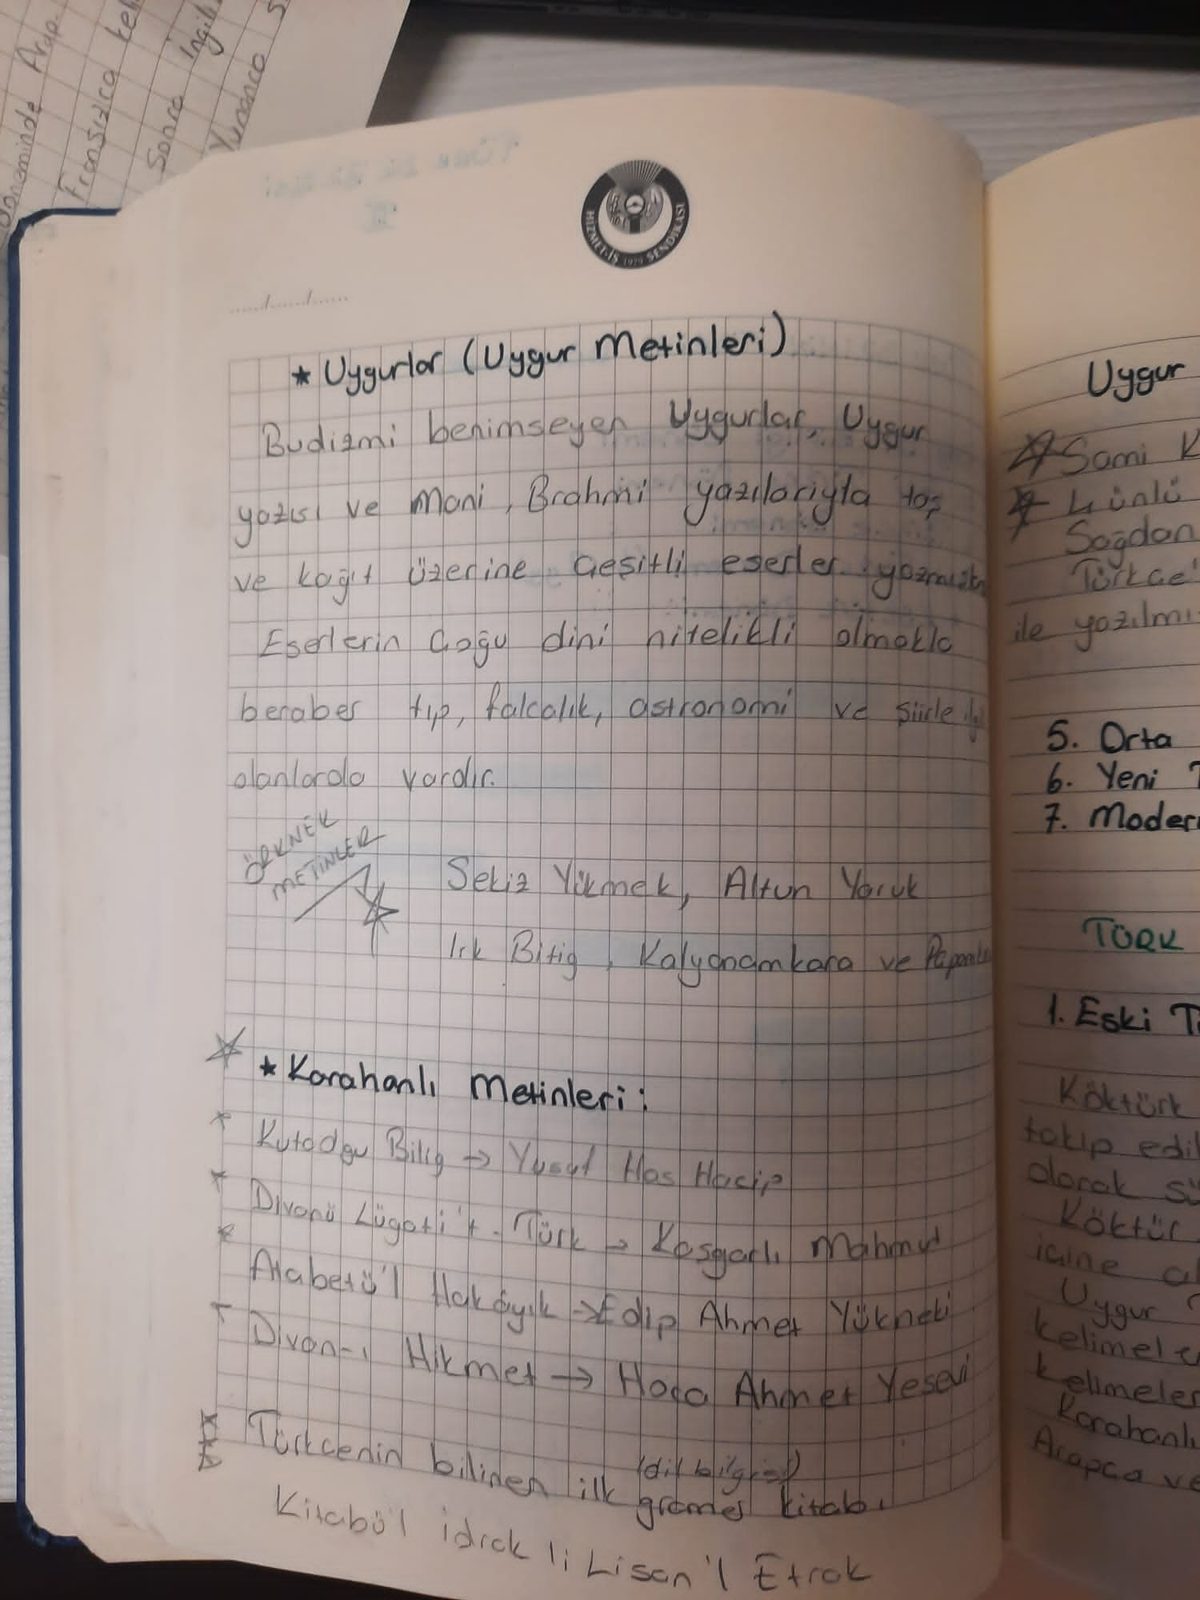 Döneminde Arap
Fransızca keli
Sonra İngili
Yunanca
HİZMET-İŞ 1979 SENDİKASI
....../....../......
★ Uygurlar (Uygur Metinleri)
Budizmi benimseyen Uygurlar, Uygur
yazısı ve Mani, Brahmi yazılarıyla taş
ve kağıt üzerine çeşitli eserler
Eserlerin çoğu dini nitelikli olmakla
beraber tıp, falcalık, astronomi ve şiirle
olanlarda vardır.
ÖRKNEK
METİNLER
Sekiz Yükmek, Altun Yaruk
Irk Bitig, Kalyanamkara ve
★ Karahanlı Metinleri:
Kutadgu Bilig → Yusuf Has Hacip
Divanü Lügati't-Türk → Kaşgarlı Mahmut
Atabetü'l Hakayık → Edip Ahmet Yükneki
Divan-ı Hikmet → Hoca Ahmet Yesevi
Türkcenin bilinen ilk (dil bilgisi)
gramer kitabı
Kitabü'l idrak li Lisan'l Etrak
Uygur
Sami K
4 ünlü
Soğdan
Türkçe'
ile yazılmı
5. Orta
6. Yeni T
7. Modern
TÜRK
1. Eski T
Köktürk
takip edil
olarak sü
Köktür
içine al
Uygur T
kelimele
kelimeler
Karahanlı
Arapça ve